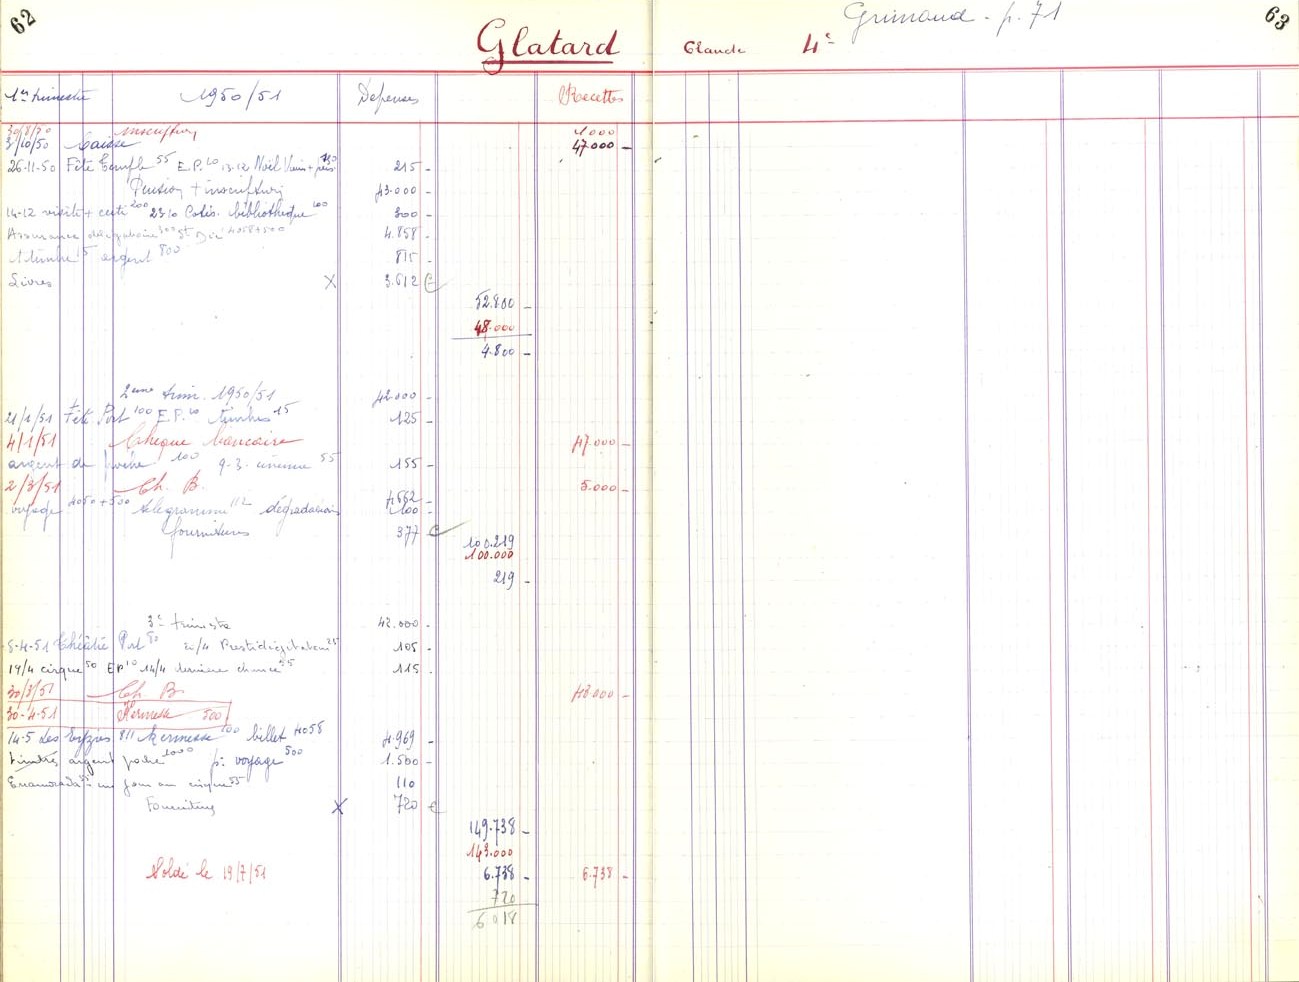 62
Glatard Claude 4e
Grimaud - p. 71
63
1er trimestre 1950/51 Dépenses Recettes
30/8/50 inscription 1000
3/10/50 Caisse 47000 -
26-11-50 Fête Temple 55 E.P. 10 13-12 Noël 215 -
Pension + inscription 43.000 -
14-12 visite + cert 200 23 10 Cotis. bibliothèque 100 300 -
Assurance 4.858 -
1 timbre 15 argent 800 815 -
Livres X 3.612
52.800 -
48.000
4.800 -
2ème trim. 1950/51 42.000 -
21/1/51 Fête Port 100 E.P. 10 timbres 15 125 -
4/1/51 Chèque bancaire 47.000 -
argent de poche 100 9-3 cinéma 55 155 -
2/3/51 Ch. B. 5.000 -
voyage 4050 + 500 télégramme 112 dégradations 4662 - 100 -
fournitures 377
100.219
100.000
219 -
3e trimestre 42.000 -
5-4-51 Théâtre 50 Prestidigitation 25 105 -
19/4 cirque 50 EP 10 14/4 dernière chance 55 115 -
30/3/51 Ch. B. 43.000 -
30-4-51 Kermesse 500
14-5 Les Eyzies 811 kermesse 100 billet 4058 4.969 -
timbres argent poche 1000 p. voyage 500 1.500 -
un jour au cirque 55 110
Fournitures X 720
149.738 -
143.000
Soldé le 19/7/51 6.738 - 6.738 -
720
6018